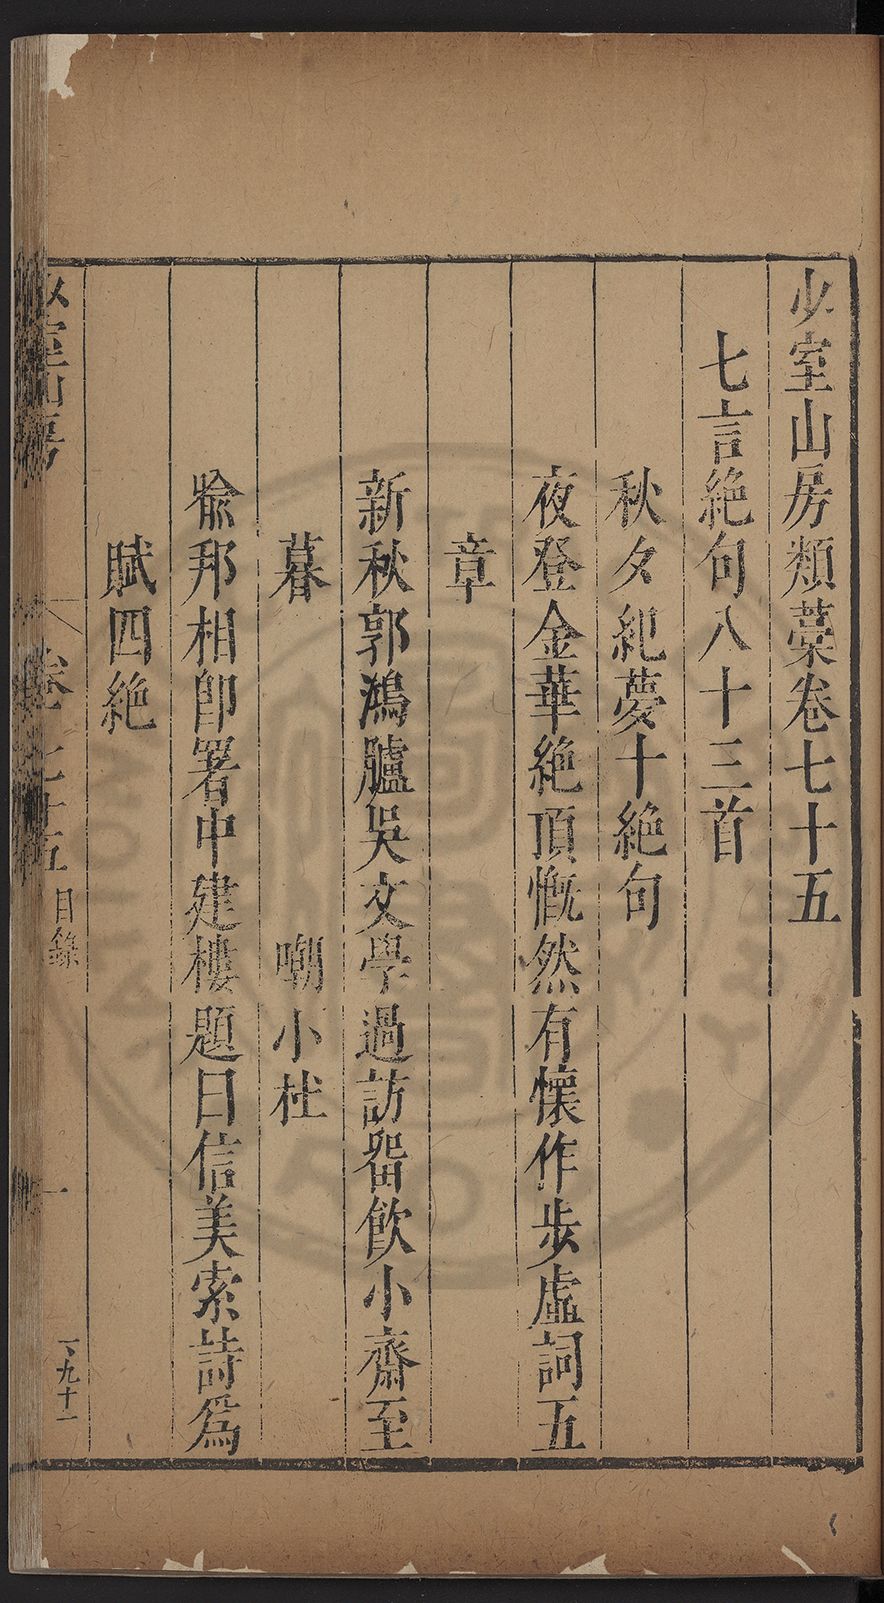 少室山房類藁卷七十五
七言絶句八十三首
秋夕紀夢十絶句
夜登金華絶頂慨然有懷作步虛詞五
章
新秋郭鴻臚吳文學過訪畱飲小齋至
暮　嘲小杜
喻邦相郎署中建樓題曰信美索詩爲
賦四絶
少室山房　卷七十五　目錄　一